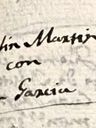 lin Martin
con
Garcia